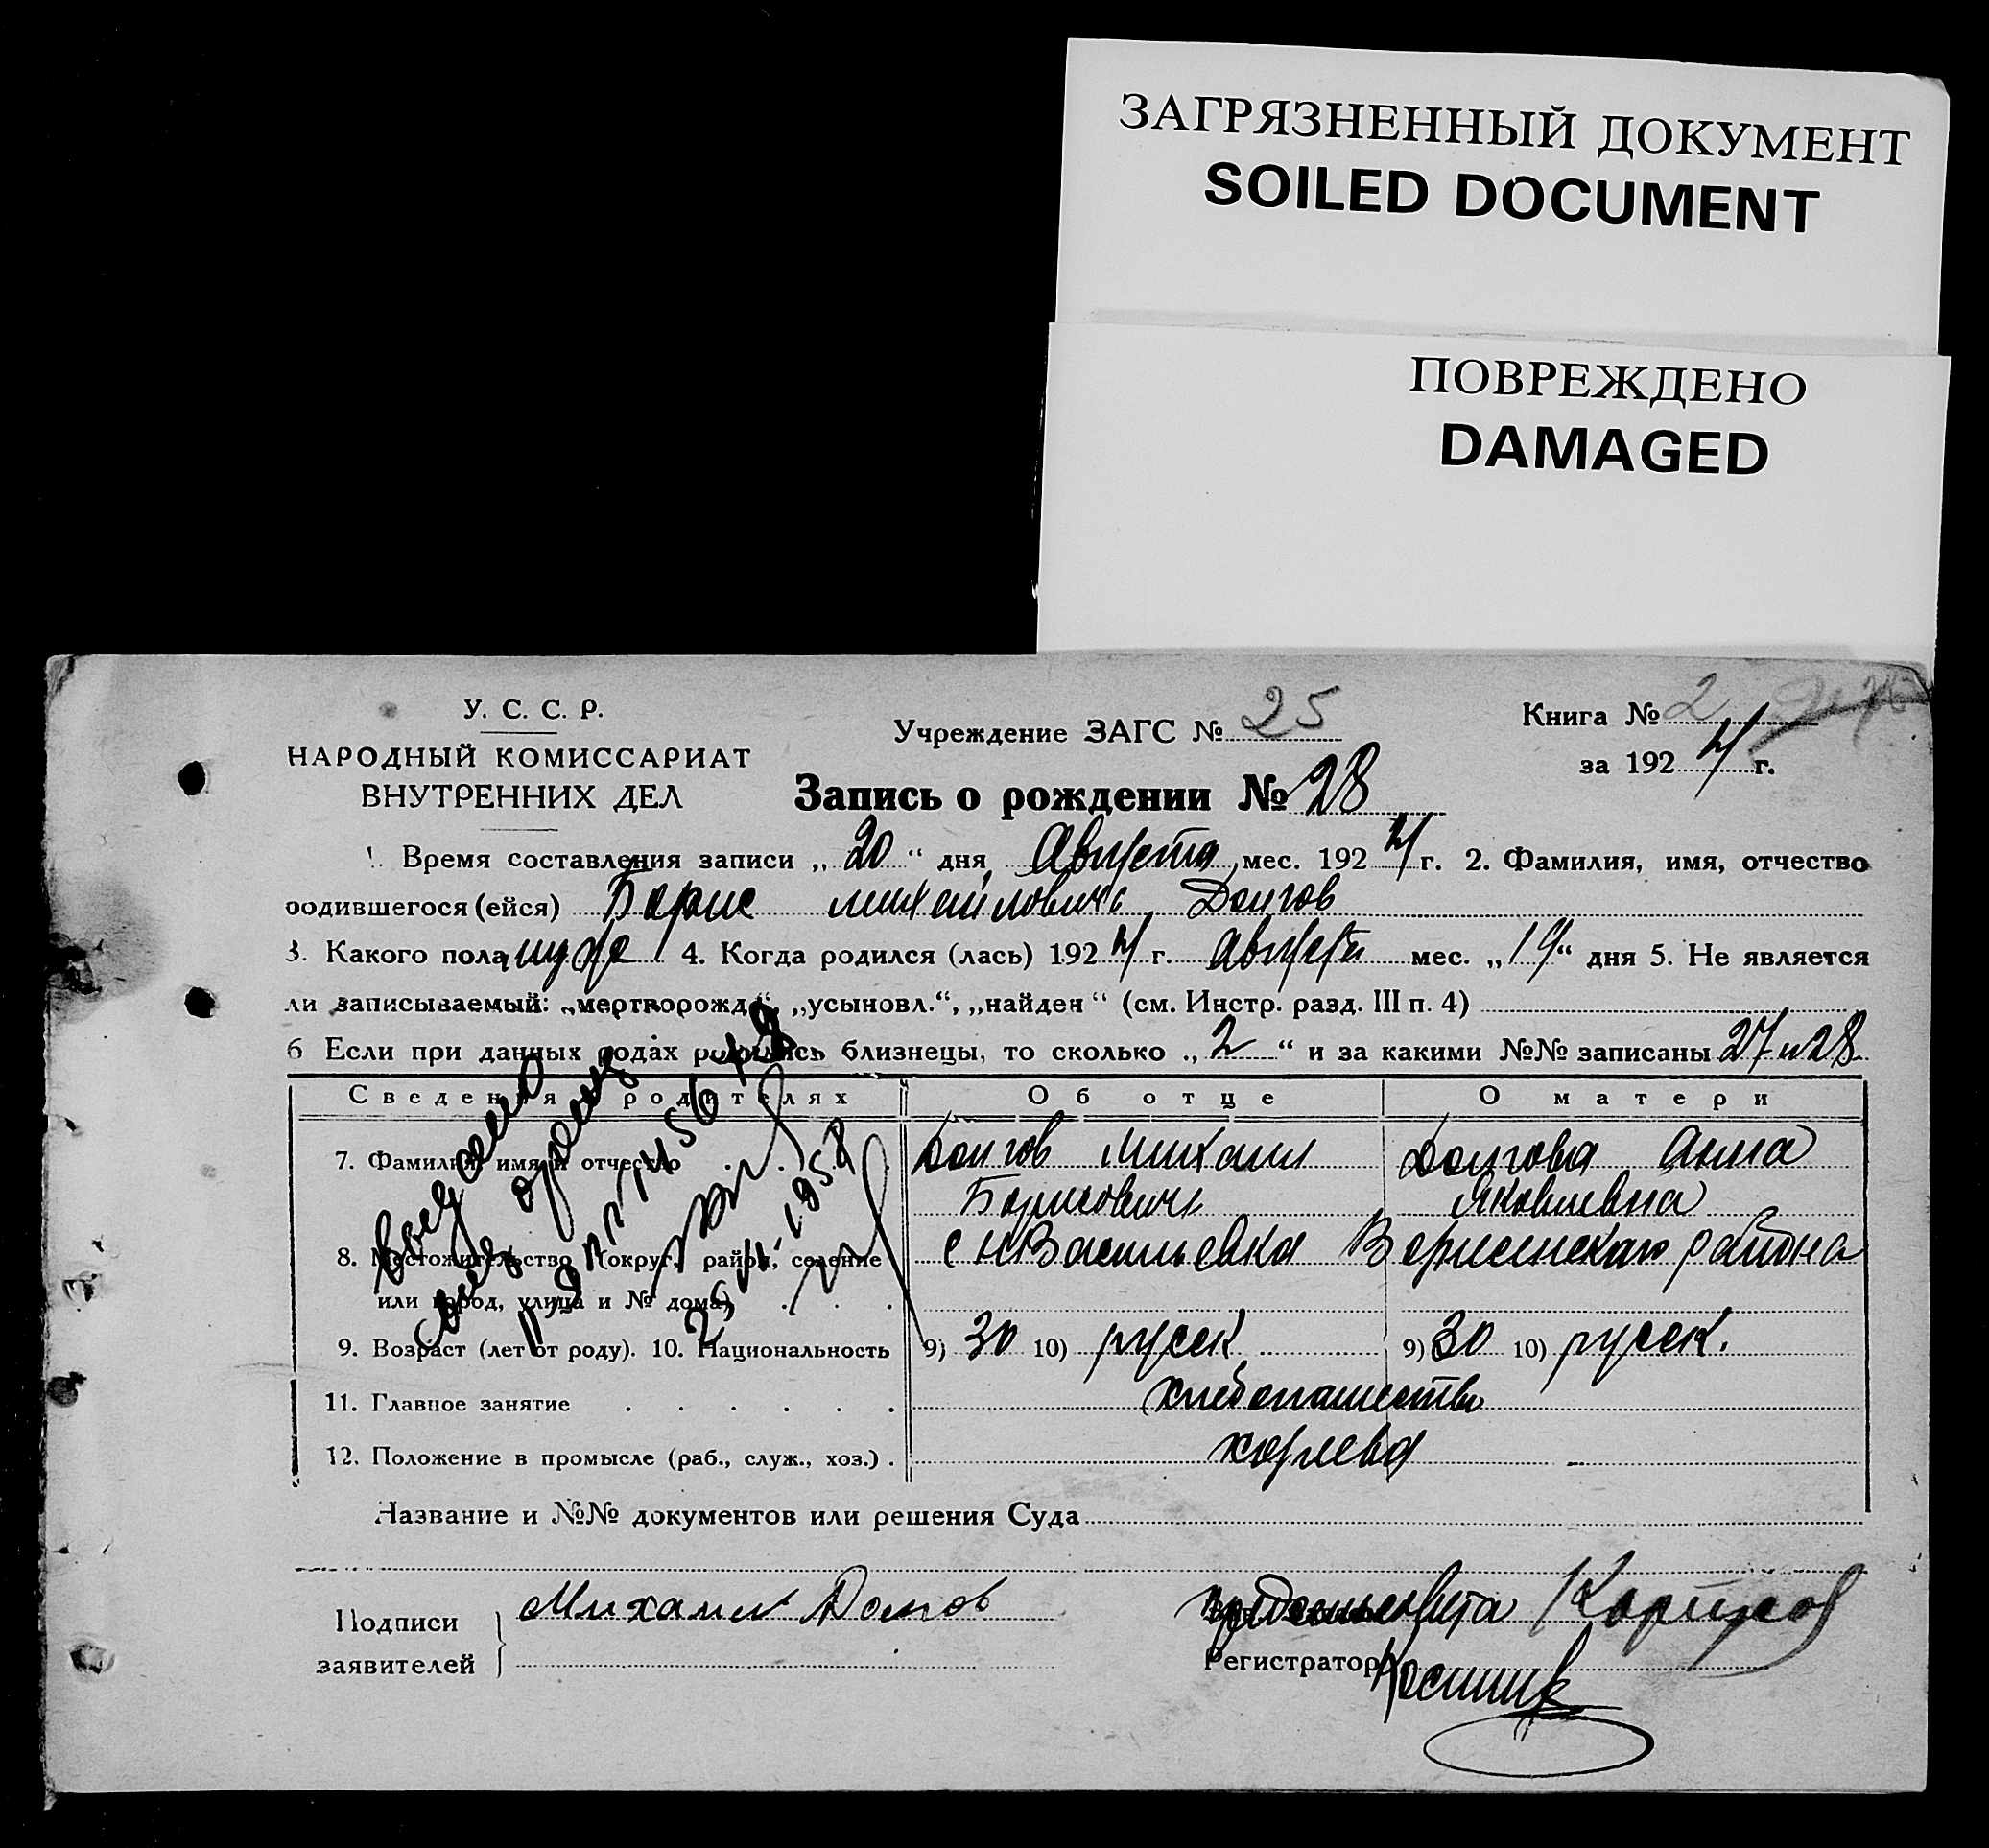 ЗАГРЯЗНЕННЫЙ ДОКУМЕНТ
SOILED DOCUMENT
ПОВРЕЖДЕНО
DAMAGED
У. С. С. Р.
НАРОДНЫЙ КОМИССАРИАТ
ВНУТРЕННИХ ДЕЛ
Учреждение ЗАГС № 25
Книга № 2
за 1924 г.
Запись о рождении № 28
1. Время составления записи „20“ дня Августа мес. 1924 г. 2. Фамилия, имя, отчество
родившегося (ейся) Борис михайлович Долгов
3. Какого пола муж 4. Когда родился (лась) 1924 г. августа мес. „19“ дня 5. Не является
ли записываемый: „мертворожд“, „усыновл.“, „найден“ (см. Инстр. разд. III п. 4)
6 Если при данных родах родились близнецы, то сколько „2“ и за какими №№ записаны 27 и 28
Сведения о родителях Об отце О матери
7. Фамилия, имя и отчество Долгов Михаил Долгова Анна
Борисович Яковлевна
8. Местожительство (округ, район, селение с Васильевка района
или город, улица и № дома)
9. Возраст (лет от роду). 10. Национальность 9) 30 10) русск 9) 30 10) русск.
11. Главное занятие хлебопашество
12. Положение в промысле (раб., служ., хоз.)
Название и №№ документов или решения Суда
Подписи Михаил Долгов
заявителей
Регистратор